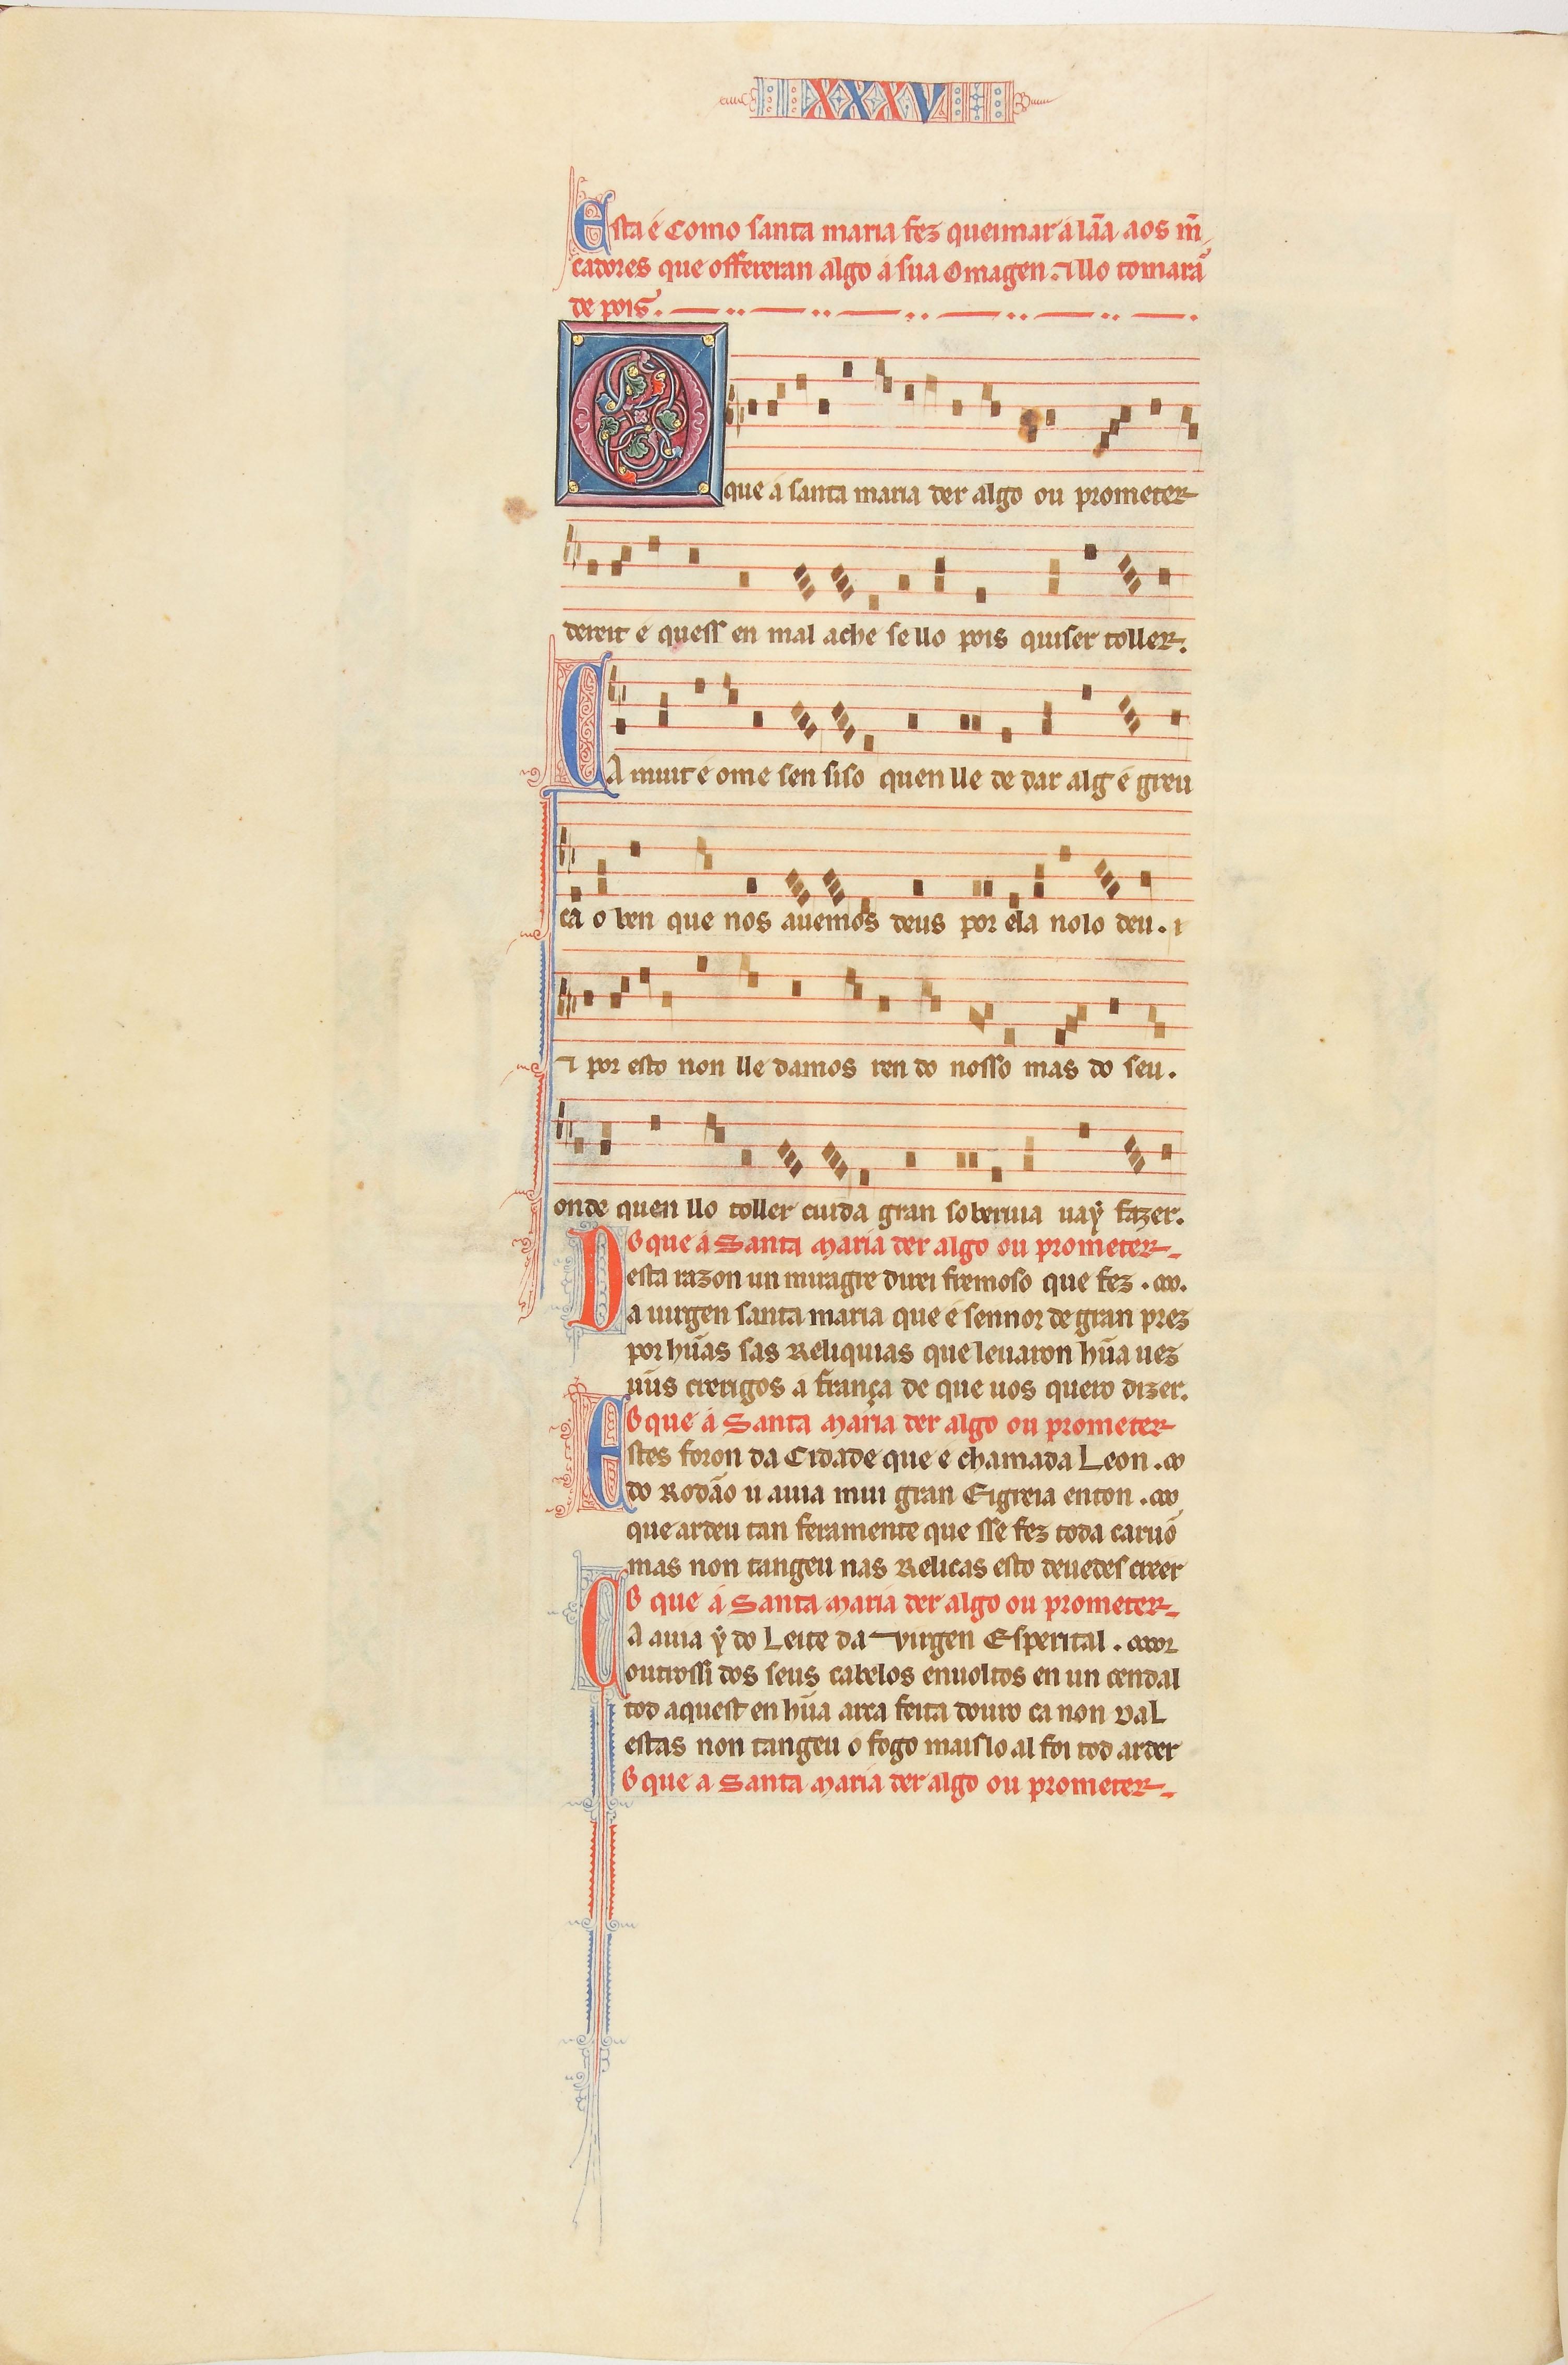 XXXV
Esta é Como santa maria fez queimar á lãa aos m̃
cadores que offereran algo á sua Omagen. ⁊ llo tomarã
de pois.
O que á santa maria der algo ou prometer
dereit é quess en mal ache se llo pois quiser toller.
CA muit é ome sen siso quen lle de dar alg é greu
ca o ben que nos auemos deus por ela nolo deu. ⁊
⁊ por esto non lle damos ren do nosso mas do seu.
onde quen llo toller cuida gran soberuia uaẏ fazer.
O que á Santa Maria der algo ou prometer
Desta razon un miragre direi fremoso que fez.
a uirgen santa maria que é sennor de gran prez
por hũas sas Reliquias que leuaron hũa uez
ũus crerigos a frança de que uos quero dizer.
O que á Santa Maria der algo ou prometer
Estes foron da Cidade que e chamada Leon.
do Rodão u auia mui gran Eigreia enton.
que ardeu tan feramente que sse fez toda caruõ
mas non tangeu nas Relicas esto deuedes creer
O que á Santa Maria der algo ou prometer
CA auia ẏ do Leite da Virgen Esperital.
outrossi dos seus cabelos enuoltos en un cendal
tod aquest en hũa arca feita douro ca non val
estas non tangeu o fogo maislo al foi tod arder
O que a Santa Maria der algo ou prometer